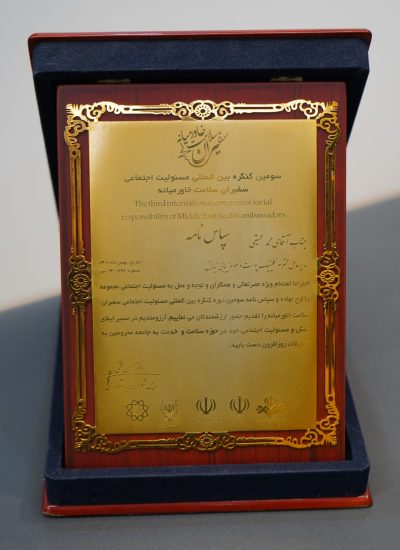 سفیران سلامت خاورمیانه
سومین کنگره بین المللی مسئولیت اجتماعی
سفیران سلامت خاورمیانه
The third international congress of social
responsibility of Middle East health ambassadors
سپاس نامه
جناب آقای محمد
مدیرعامل محترم کلینیک پوست و مو
احتراما اهتمام ویژه حضرتعالی و همکاران و توجه و عمل به مسئولیت اجتماعی مجموعه
را ارج نهاده و سپاس نامه سومین دوره کنگره بین المللی مسئولیت اجتماعی سفیران
سلامت خاورمیانه را تقدیم حضور ارزشمندتان می نماییم. آرزومندیم در مسیر ایفای
نقش و مسئولیت اجتماعی خود در حوزه سلامت و خدمت به جامعه سرزمین به
توفیقات روزافزون دست یابید.